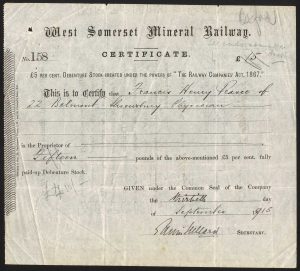 West Somerset Mineral Railway.
CERTIFICATE.
No. 158
£ 15
£5 PER CENT. DEBENTURE STOCK CREATED UNDER THE POWERS OF "THE RAILWAY COMPANIES ACT, 1867."
This is to Certify that Francis Henry Pearce of
22 Belmont Shrewsbury Physician
is the Proprietor of
Fifteen pounds of the above-mentioned £5 per cent. fully
paid-up Debenture Stock.
GIVEN under the Common Seal of the Company
the day
of September 1915
SECRETARY.